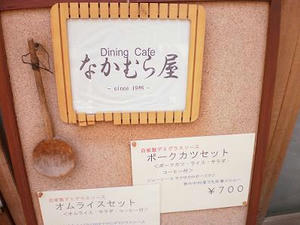 Dining Cafe
なかむら屋
自家製デミグラスソース
ポークカツセット
<ポークカツ・ライス・サラダ・
コーヒー付>
¥700
自家製デミグラスソース
オムライスセット
<オムライス・サラダ・コーヒー付>